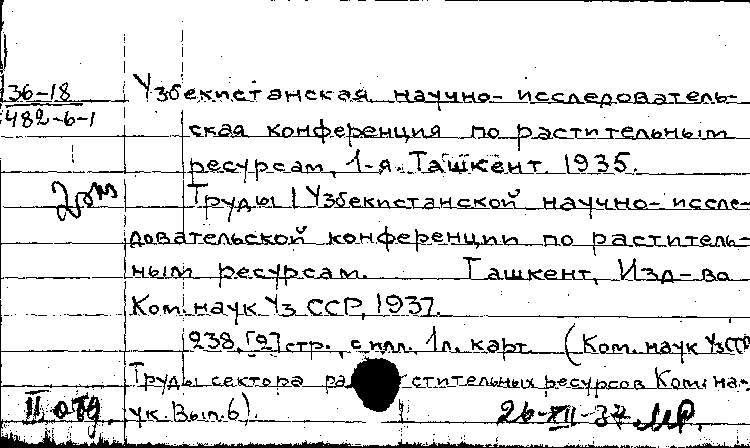 36-18
482-6-1
Узбекистанская научно-исследователь-
ская конференция по растительным
ресурсам, 1-я. Ташкент. 1935.
Труды I Узбекистанской научно-иссле-
довательской конференции по раститель-
ным ресурсам. Ташкент, Изд-во
Ком. наук Уз ССР, 1937.
238, [2] стр., с илл. 1 л. карт. (Ком. наук УзССР
Труды сектора растительных ресурсов Ком. на-
ук. Вып. 6).
II отд.
26-XII-37